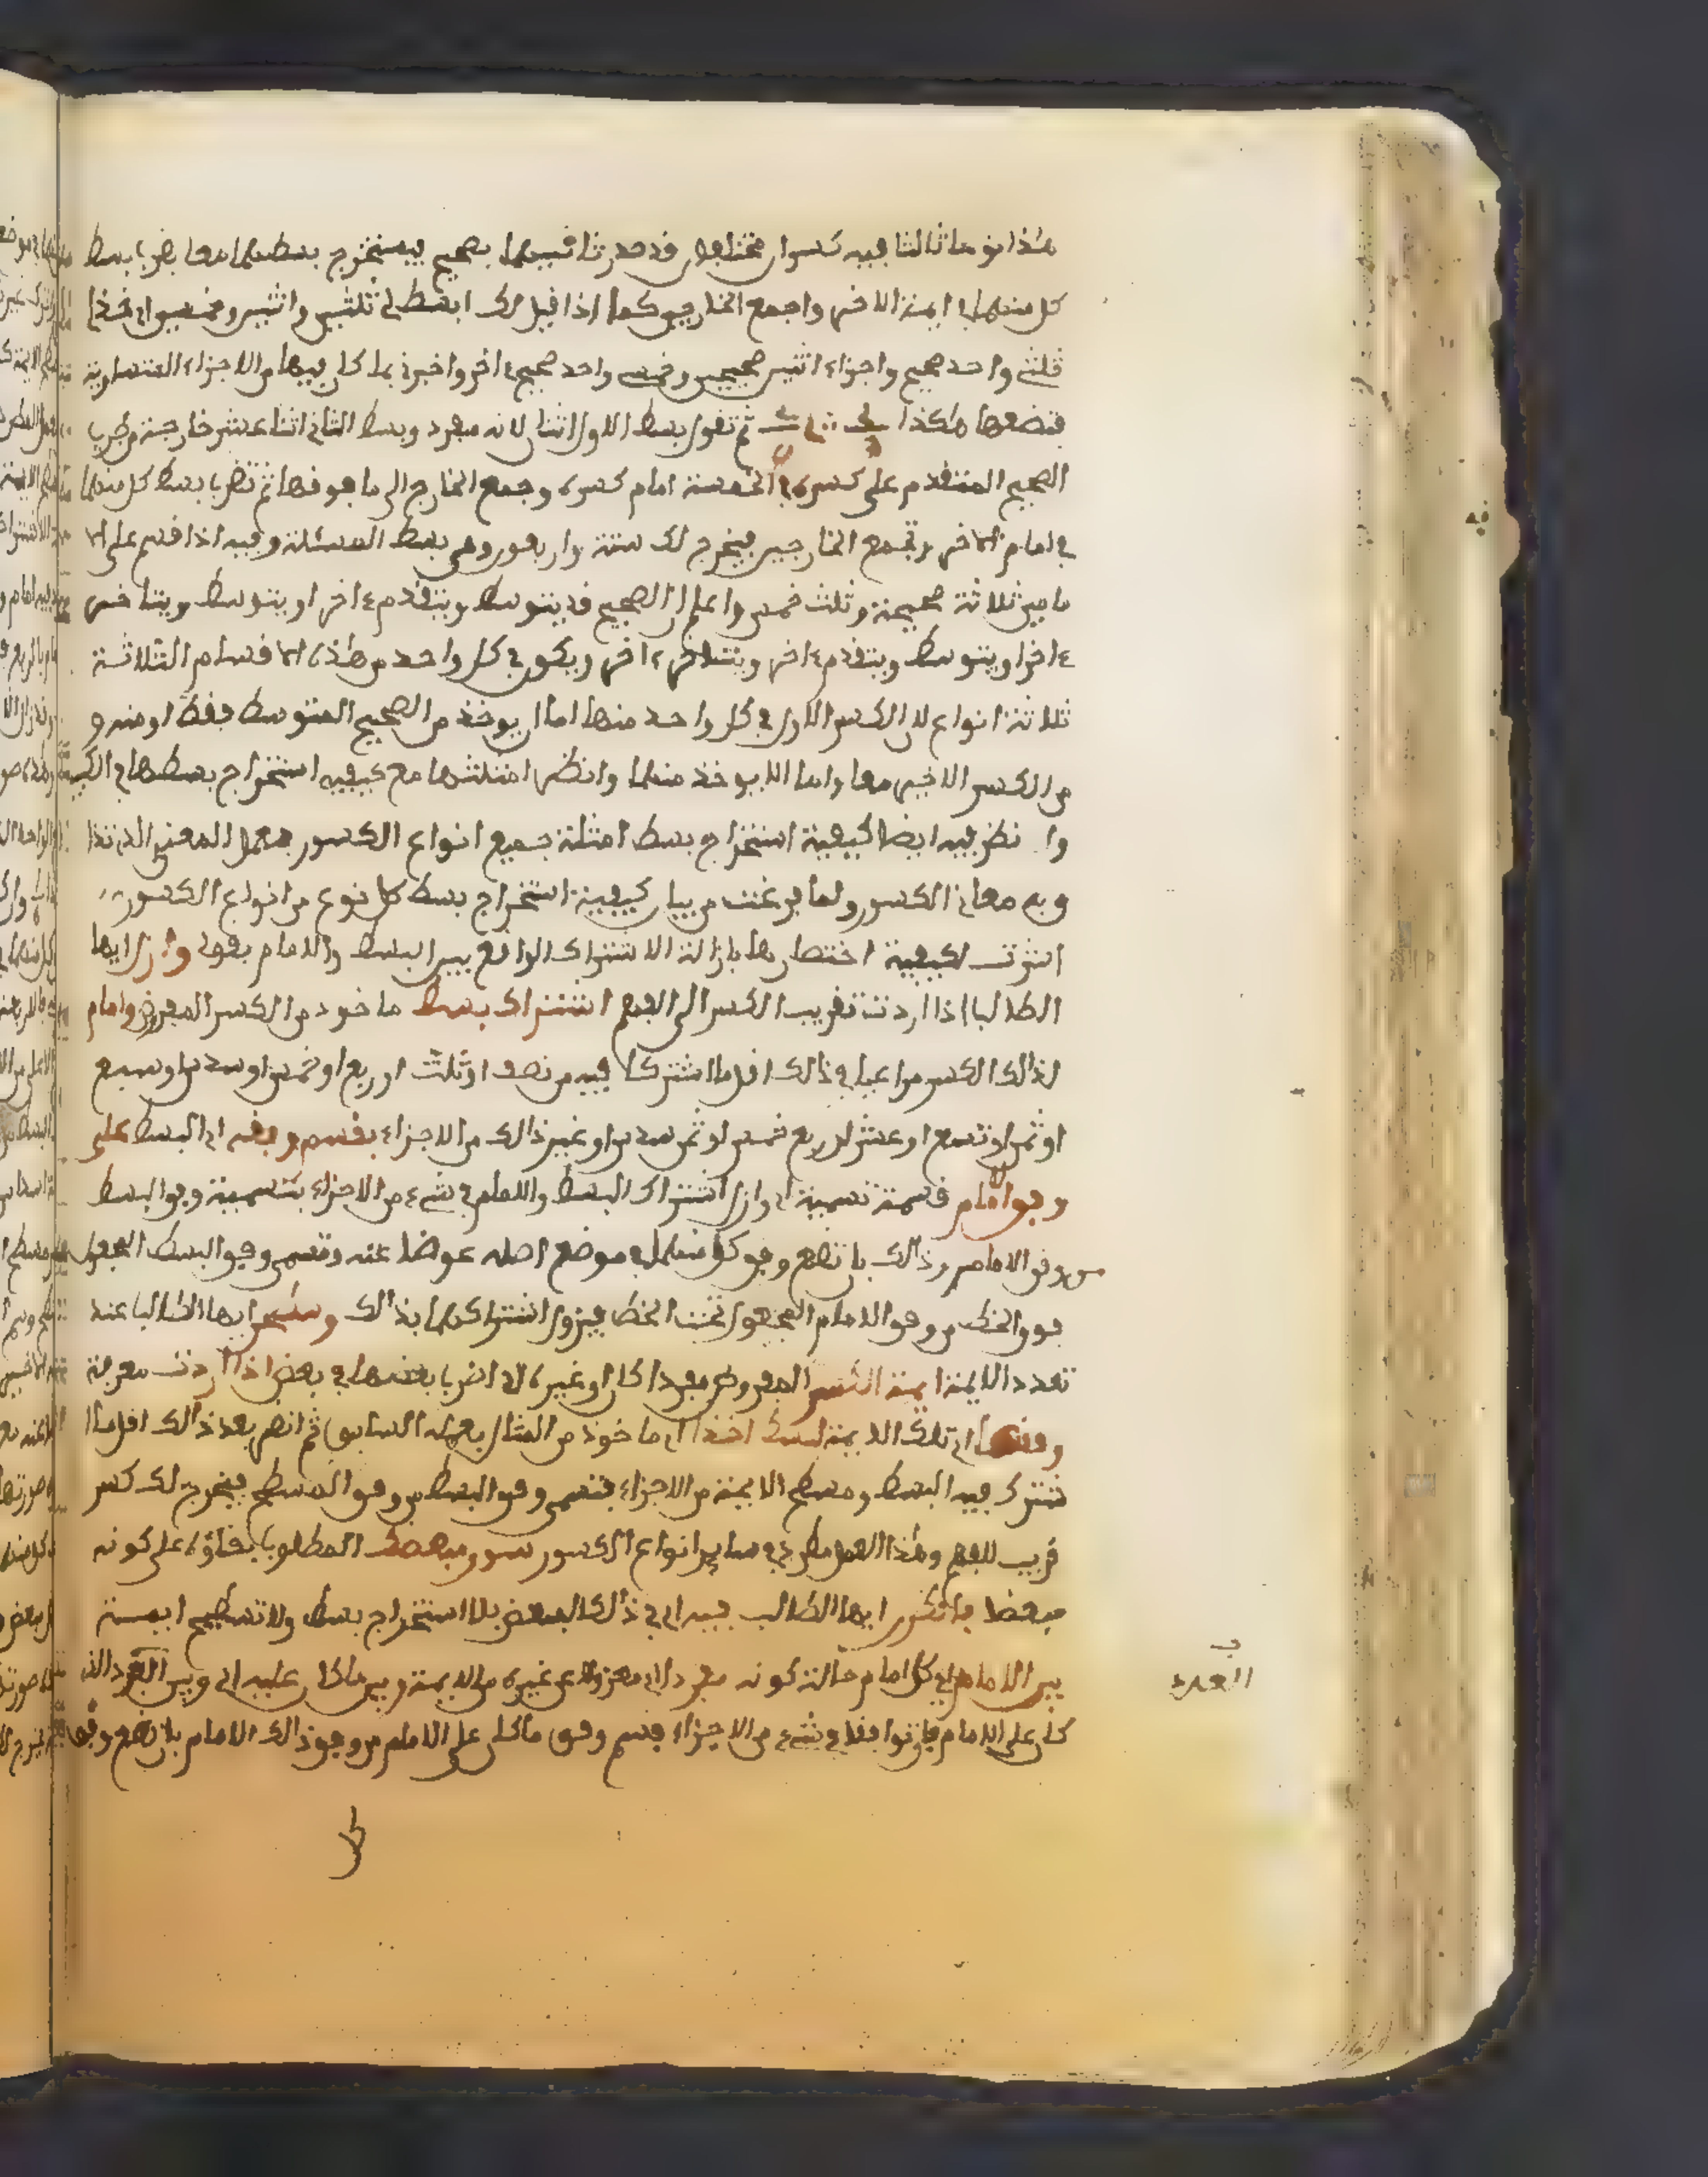 هذا نوعا ثالثا فيه كسران مختلفان قد صدرنا ثانيهما بصحيح فيستخرج بسطهما معا بضرب بسط
كل منهما في ايمة الاخر واجمع الخارجين كما اذا قيل لك ابسط لي ثلثين واثنين وخمسين اي خذ لي
ثلثي واحد صحيح واجزاء اثنين صحيحين وخمسي واحد صحيح اخر واخبرني بما كان فيها من الاجزاء المتساوية
فتضعها هكذا ثم تقول بسط الاول اثنان لانه مفرد وبسط الثاني اثنا عشر خارجة من ضرب
الصحيح المتقدم على كسره في الخمسة امام كسره وجمع الخارج الى ما فوقها ثم تضرب بسط كل منهما
في امام الاخر وتجمع الخارجين فيخرج لك ستة واربعون وهي بسط المسئلة وفيه اذا قسم على الا
مامين ثلاثة صحيحة وثلث خمس واعلم ان الصحيح قد يتوسط ويتقدم اخر او يتوسط ويتاخر
اخر او يتوسط ويتقدم اخر ويتاخر اخر ويكون في كل واحد من هذه الاقسام الثلاثة
ثلاثة انواع لان الكسر الاول في كل واحد منها اما ان يوخذ من الصحيح المتوسط فقط او منه و
من الكسر الاخير معا واما الا يوخذ منهما وانظر امثلتها مع كيفية استخراج بسطها في الكبير
وا نظر فيه ايضا كيفية استخراج بسط امثلة جميع انواع الكسور
وبه معاني الكسور ولما فرغت من بيان كيفية استخراج بسط كل نوع من انواع الكسور
اشرت لكيفية اختصارها بازالة الاشتراك الواقع بين البسط والامام بقولي وازل ايها
الطالب اذا اردت تقريب الكسر الى الفهم اشتراك بسط ماخوذ من الكسر المفروض وامام
لذالك الكسر مراعيا في ذالك اقل ما اشتركا فيه من نصف او ثلث او ربع او خمس او سدس او سبع
او ثمن او تسع او عشر او ربع خمس او ثمن سدس او غير ذالك من الاجزاء بقسم وفقه اي البسط على
وفق الامام قسمة تسمية اي وازل اشتراك البسط والامام في شيء من الاجزاء بتسمية وفق البسط
من وفق الامام وذالك بان تضع وفق كل منهما في موضع اصله عوضا عنه وتسمي وفق البسط المجعول
فوق الخط من وفق الامام المجعول تحت الخط فيزول اشتراكهما بذالك وسطحن ايها الطالب عند
تعدد الايمة ايمة الكسر المفروض مفردا كان او غيره اي اضرب بعضها في بعض اذا اردت معرفة
وفقها اي تلك الايمة لبسط اخذا اي ماخوذ من المثال بعمله السابق ثم انظر بعد ذالك اقل ما
تشترك فيه البسط ومسطح الايمة من الاجزاء فتسمي وفق البسط من وفق المسطح فيخرج لك كسر
قريب للفهم وهذا العمل مطرد في ساير انواع الكسور سوى مبعض المطلوب بقاؤه على كونه
مبعضا فانظرن ايها الطالب فيه اي في ذالك المبعض بلا استخراج بسط ولا تسطيح ايمة
بين الامام اي كل امام حالة كونه مفردا اي معزولا عن غيره من الايمة وبين ما كان عليه اي وبين العدد الذي
كان على الامام فان توافقا في شيء من الاجزاء فسم وفق ما كان على الامام من وفق ذالك الامام بان تضع وفق
العدد